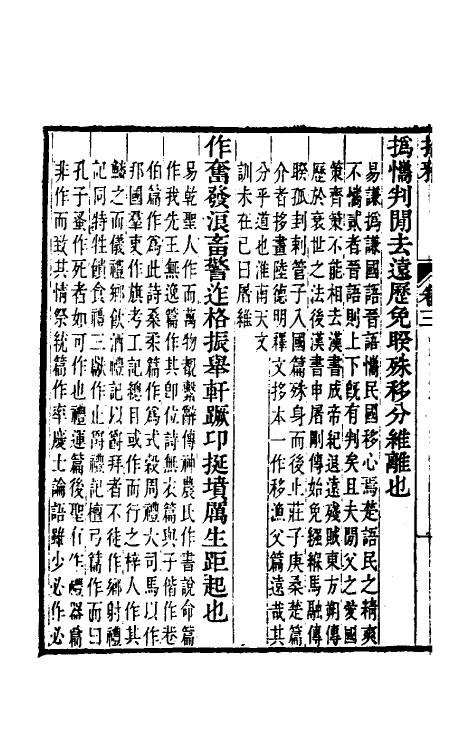 拾雅 卷三
撝攜判閒去遠歷免睽殊移分維離也
易謙撝謙國語晉語攜民國移心焉楚語民之精爽
不攜貳者晉語則上下旣有判矣且夫閒父之愛國
策齊策不能相去漢書成帝紀退遠殘賊東方朔傳
歷於衰世之法後漢書申屠剛傳始免繦緥馬融傳
睽孤刲刺管子入國篇殊身而後止莊子庚桑楚篇
介者拸畫陸德明釋文拸本一作移漁父篇遠哉其
分乎道也淮南天文
訓未在己曰屠維
作奮發浪畜警迮格振舉軒蹶卬挺墳厲生距起也
易乾聖人作而萬物覩繫辭傳神農氏作書說命篇
作我先王無逸篇作其卽位詩無衣篇與子偕作巷
伯篇作爲此詩桑柔篇作爲式穀周禮大司馬以作
邦國羣吏作旗考工記總目或作而行之梓人作其
鱗之而儀禮鄉飲酒禮記以爵拜者不徒作鄉射禮
記同特牲饋食禮三獻作止爵禮記檀弓篇作而曰
孔子蚤作死者如可作也禮運篇後聖有作禮器篇
非作而致其情祭統篇作率慶士論語雖少必作必